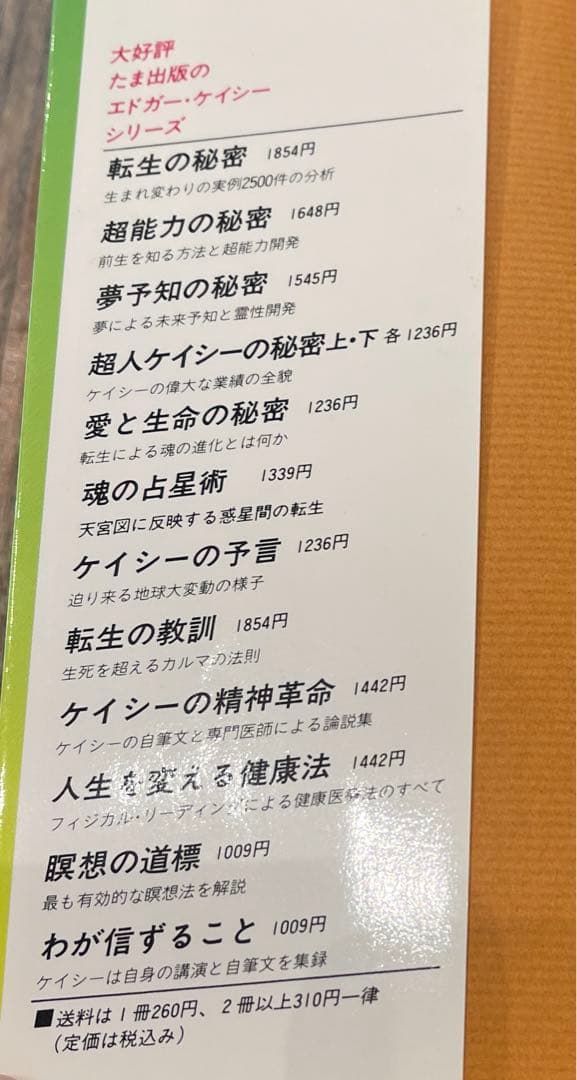 大好評
たま出版の
エドガー・ケイシー
シリーズ
転生の秘密 1854円
生まれ変わりの実例2500件の分析
超能力の秘密 1648円
前生を知る方法と超能力開発
夢予知の秘密 1545円
夢による未来予知と霊性開発
超人ケイシーの秘密上・下 各1236円
ケイシーの偉大な業績の全貌
愛と生命の秘密 1236円
転生による魂の進化とは何か
魂の占星術 1339円
天宮図に反映する惑星間の転生
ケイシーの予言 1236円
迫り来る地球大変動の様子
転生の教訓 1854円
生死を超えるカルマの法則
ケイシーの精神革命 1442円
ケイシーの自筆文と専門医師による論説集
人生を変える健康法 1442円
フィジカル・リーディングによる健康医療法のすべて
瞑想の道標 1009円
最も有効的な瞑想法を解説
わが信ずること 1009円
ケイシーは自身の講演と自筆文を集録
■送料は1冊260円、2冊以上310円一律
(定価は税込み)